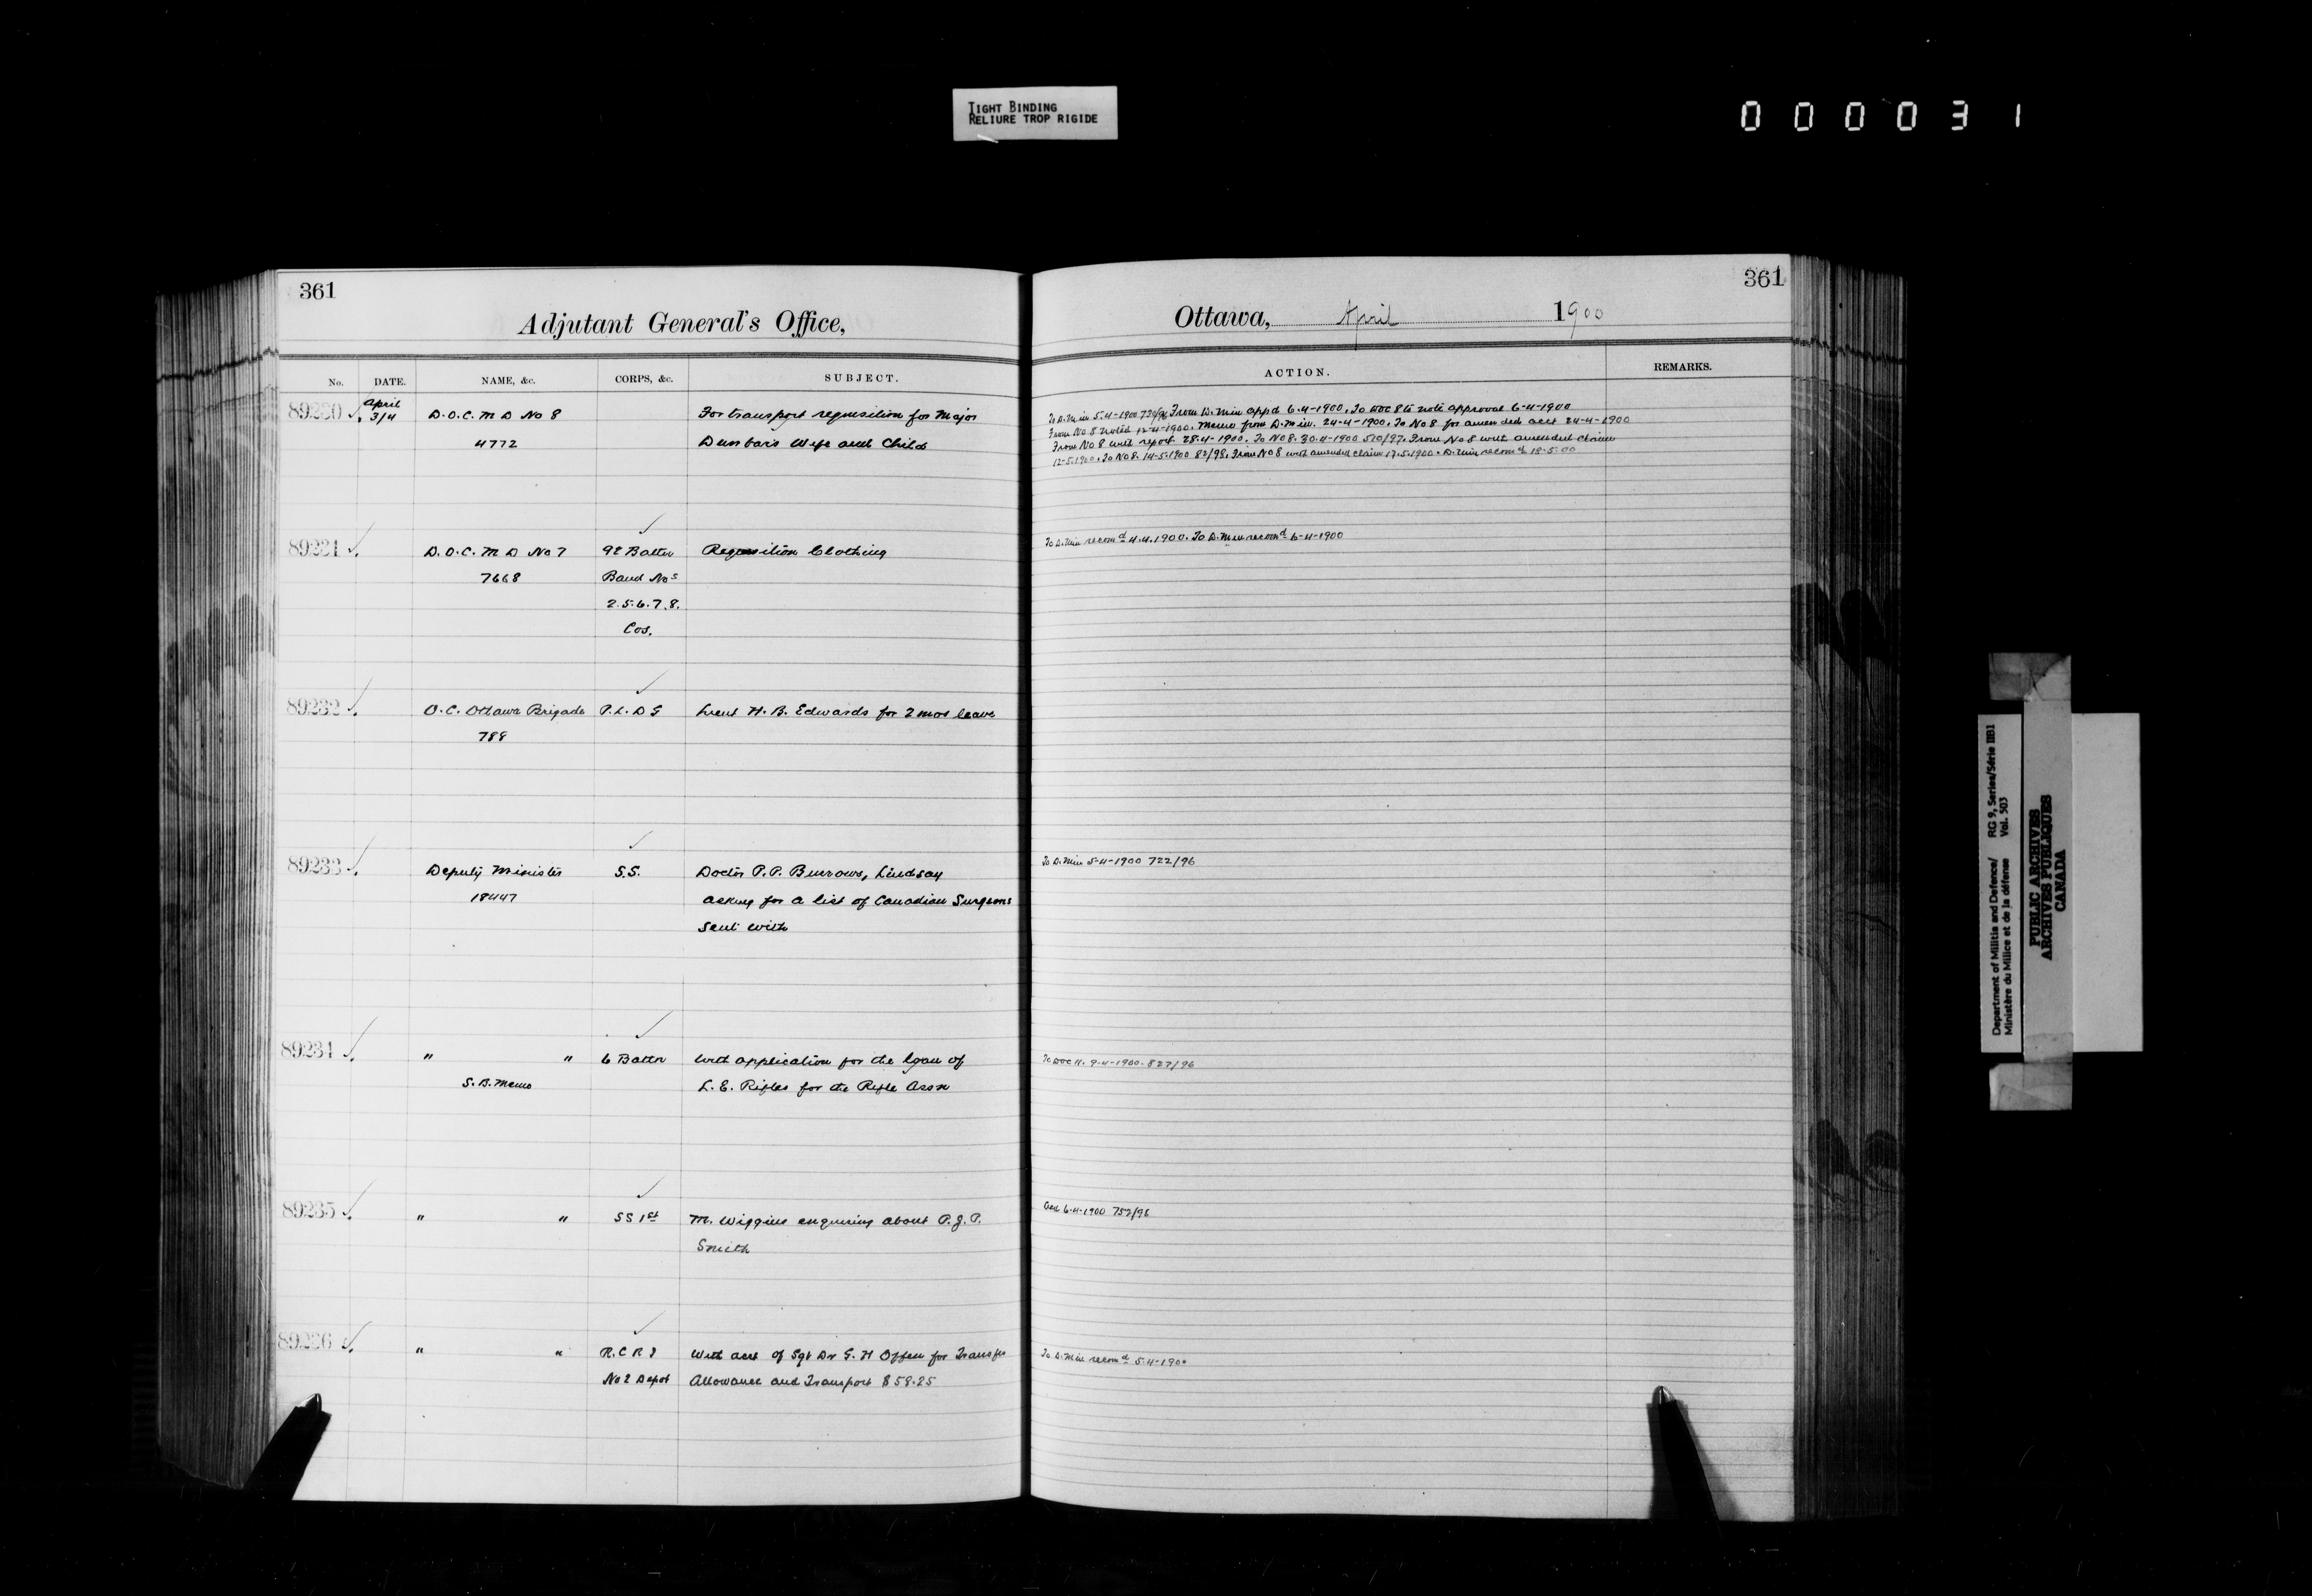 TIGHT BINDING
RELIURE TROP RIGIDE
000031
361
Adjutant General's Office,
No. DATE. NAME, &c. CORPS, &c. SUBJECT.
89230 April 3/4 D.O.C. M D No 8 For transport requisition for Major
4772 Dunbar's Wife and Child
89231 D.O.C. M D No 7 9t Battn Requisition Clothing
7668 Band Nos
2.5.6.7.8.
Cos.
89232 O.C. Ottawa Brigade P.L.D G Lieut H. B. Edwards for 2 mos leave
788
89233 Deputy Minister S.S. Doctor P.P. Burrows, Lindsay
18447 asking for a list of Canadian Surgeons
sent with
89234 " " 6 Battn With application for the loan of
S.B. Memo L.E. Rifles for the Rifle Assn
89235 " " SS 1st M. Wiggins enquiring about P.J.P.
Smith
89236 " " R.C R I With acct of Sgt Dr G. H Offen for Transfer
No 2 Depot Allowance and Transport $58.25
361
Ottawa, April 1900
ACTION. REMARKS.
To D.Min 5-4-1900 730/96 From D. Min appd 6-4-1900. To DOC 8 to note approval 6-4-1900
From No 8 noted 12-4-1900. Memo from D.Min. 24-4-1900. To No 8 for amended acct 24-4-1900
From No 8 with report 28-4-1900. To No 8. 30-4-1900 510/97. From No 8 with amended claim
12-5-1900. To No 8. 14-5-1900 82/98. From No 8 with amended claim 17-5-1900. D. Min recomd 18-5-00
To D.Min recomd 4.4.1900. To D.Min recomd 6-4-1900
To D.Min 5-4-1900 722/96
To DOC 11. 9-4-1900. 827/96
6-4-1900 752/96
To D.Min recomd 5-4-1900
Department of Militia and Defence/ RG 9, Series/Série IIB1
Ministère du Milice et de la défense Vol. 503
PUBLIC ARCHIVES
ARCHIVES PUBLIQUES
CANADA